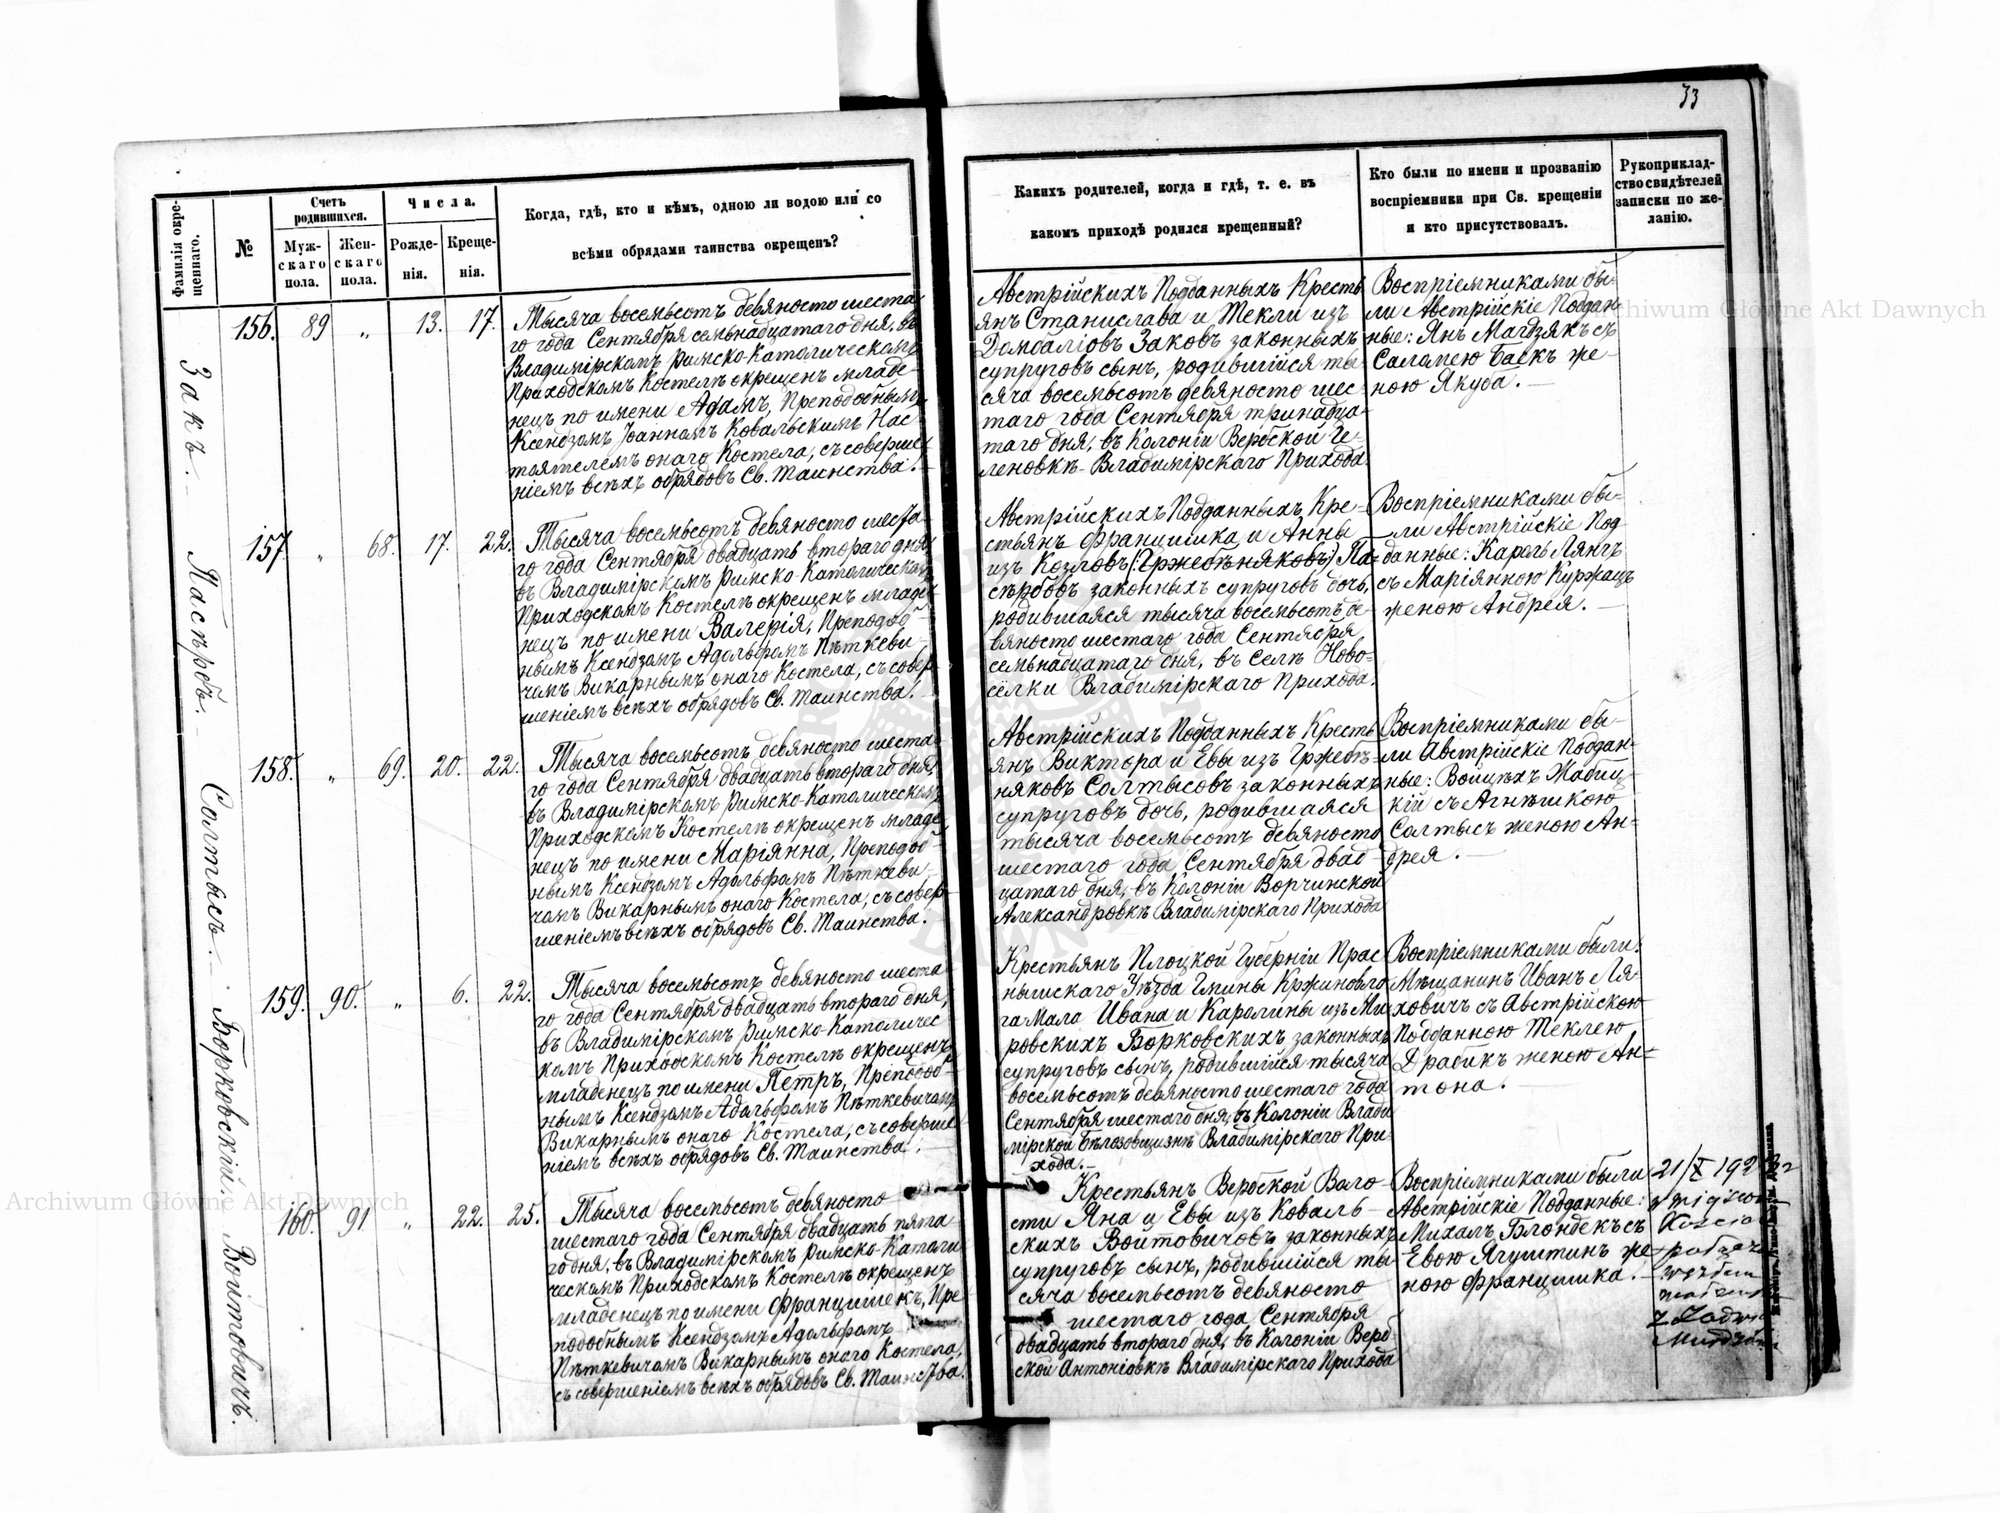 33
Фамилія окре-
щеннаго.
№
Счетъ
родившихся.
Муж-
скаго
пола.
Жен-
скаго
пола.
Числа.
Рожде-
нія.
Креще-
нія.
Когда, гдѣ, кто и кѣмъ, одною ли водою или со
всѣми обрядами таинства окрещенъ?
Какихъ родителей, когда и гдѣ, т. е. въ
какомъ приходѣ родился крещенный?
Кто были по имени и прозванію
воспріемники при Св. крещеніи
и кто присутствовалъ.
Рукоприклад-
ство свидѣтелей
записки по же-
ланію.
Закъ.
156. 89 „ 13. 17.
Тысяча восемьсотъ девяносто шеста
го года Сентября семьнадцатаго дня, въ
Владимірскомъ Римско-Католическомъ
Приходскомъ Костелѣ окрещенъ младе-
нецъ по имени Адамъ, Преподобнымъ
Ксендзомъ Іоанномъ Ковальскимъ Нас-
тоятелемъ онаго Костела, съ соверше
ніемъ всѣхъ обрядовъ Св. Таинства.
Австрійскихъ Подданныхъ Кресть
янъ Станислава и Текли изъ
Домбаловъ Заковъ законныхъ
супруговъ сынъ, родившійся ты
сяча восемьсотъ девяносто шес
таго года Сентября тринадца
таго дня, въ Колоніи Вербской Ге-
леновкѣ - Владимірскаго Прихода.
Воспріемниками бы-
ли Австрійскіе Поддан
ные: Янъ Магдзякъ съ
Саломею Баскъ же-
ною Якуба.
Пастербъ.
157. „ 68. 17. 22.
Тысяча восемьсотъ девяносто шеста-
го года Сентября двадцать втораго дня,
въ Владимірскомъ Римско-Католическомъ
Приходскомъ Костелѣ окрещенъ младе
нецъ по имени Валерія, Преподоб-
нымъ Ксендзомъ Адольфомъ Пѣткеви-
чемъ Викарнымъ онаго Костела, съ совер
шеніемъ всѣхъ обрядовъ Св. Таинства.
Австрійскихъ Подданныхъ Кре-
стьянъ Францишка и Анны
изъ Козловъ (Гржебѣняковъ) Па-
сербовъ законныхъ супруговъ дочь,
родившаяся тысяча восемьсотъ де-
вяносто шестаго года Сентября
семьнадцатаго дня, въ селѣ Ново-
сёлки Владимірскаго Прихода.
Воспріемниками бы-
ли Австрійскіе Под
данные: Кароль Лянгъ
съ Маріянною
женою Андрея.
Солтысъ.
158. „ 69. 20. 22.
Тысяча восемьсотъ девяносто шеста
го года Сентября двадцать втораго дня,
въ Владимірскомъ Римско-Католическомъ
Приходскомъ Костелѣ окрещенъ младе
нецъ по имени Маріянна, Преподоб
нымъ Ксендзомъ Адольфомъ Пѣткеви-
чемъ Викарнымъ онаго Костела, съ совер
шеніемъ всѣхъ обрядовъ Св. Таинства.
Австрійскихъ Подданныхъ Кресть
янъ Виктора и Евы изъ Гржебѣ-
няковъ Солтысовъ законныхъ
супруговъ дочь, родившаяся
тысяча восемьсотъ девяносто
шестаго года Сентября двад-
цатаго дня, въ Колоніи Ворчинской
Александровкѣ Владимірскаго Прихода
Воспріемниками бы-
ли Австрійскіе Поддан-
ные: Войцѣхъ Жабиц-
кій съ Агнѣшкою
Солтысъ женою Ан-
дрея.
Борковскій.
159. 90. „ 6. 22.
Тысяча восемьсотъ девяносто шеста
го года Сентября двадцать втораго дня,
въ Владимірскомъ Римско-Католичес
комъ Приходскомъ Костелѣ окрещенъ
младенецъ по имени Петръ, Преподоб-
нымъ Ксендзомъ Адольфомъ Пѣткевичемъ
Викарнымъ онаго Костела, съ соверше
ніемъ всѣхъ обрядовъ Св. Таинства.
Крестьянъ Плоцкой Губерніи Прас
нышскаго Уѣзда Гмины Кржиновло
га Мала Ивана и Каролины изъ Ми
ровскихъ Борковскихъ законныхъ
супруговъ сынъ, родившійся тысяча
восемьсотъ девяносто шестаго года
Сентября шестаго дня, въ Колоніи Влади
мірской Владимірскаго При-
хода.
Воспріемниками были:
Мѣщанинъ Иванъ Ля-
ховичъ съ Австрійскою
Подданною Теклею
Драбикъ женою Ан-
тона.
Войтовичъ.
160. 91 „ 22. 25.
Тысяча восемьсотъ девяносто
шестаго года Сентября двадцать пята
го дня, въ Владимірскомъ Римско-Католи
ческомъ Приходскомъ Костелѣ окрещенъ
младенецъ по имени Францишекъ, Пре
подобнымъ Ксендзомъ Адольфомъ
Пѣткевичемъ Викарнымъ онаго Костела,
съ совершеніемъ всѣхъ обрядовъ Св. Таинства.
Крестьянъ Вербской Воло-
сти Яна и Евы изъ Коваль-
скихъ Войтовичовъ законныхъ
супруговъ сынъ, родившійся ты
сяча восемьсотъ девяносто
шестаго года Сентября
двадцать втораго дня, въ Колоніи Верб
ской Антоніовкѣ Владимірскаго Прихода
Воспріемниками были
Австрійскіе Подданные:
Михалъ Блондекъ съ
Евою Ягуштинъ же-
ною Францишка.
21/X 192
Archiwum Główne Akt Dawnych
Archiwum Główne Akt Dawnych